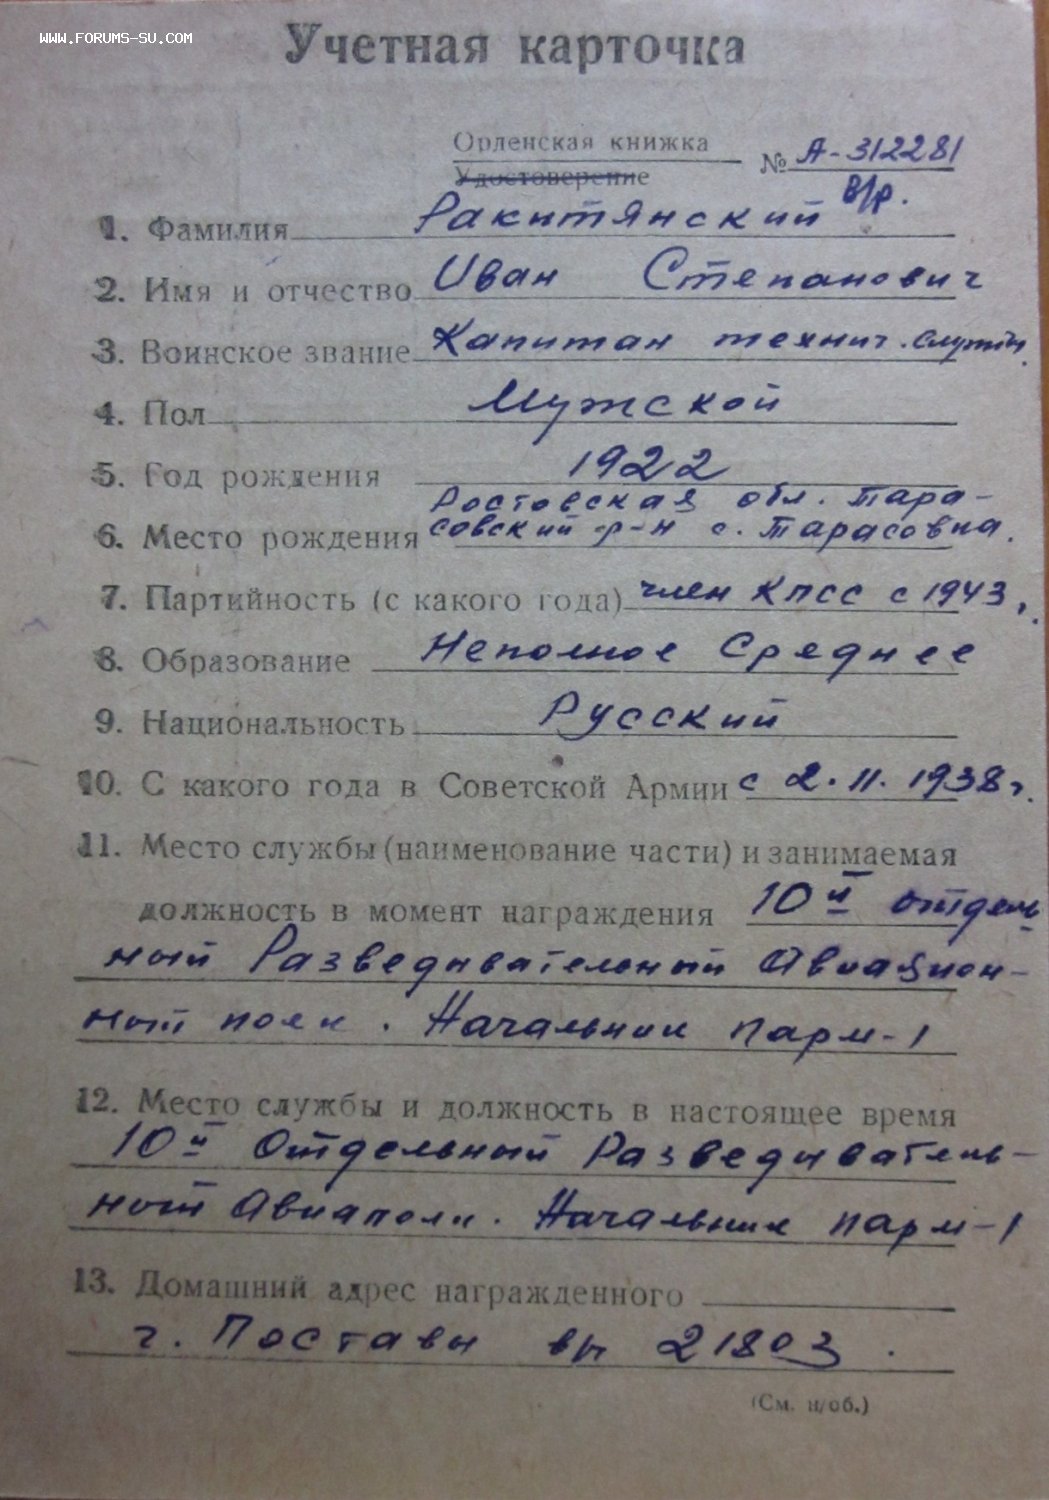 WWW.FORUMS-SU.COM
Учетная карточка
Орденская книжка
Удостоверение
№ А-312281
В/р.
1. Фамилия Ракитянский
2. Имя и отчество Иван Степанович
3. Воинское звание Капитан технич. службы.
4. Пол Мужской
5. Год рождения 1922
Ростовская обл. Тара-
6. Место рождения совский р-н с. Тарасовка.
7. Партийность (с какого года) член КПСС с 1943 г.
8. Образование Неполное Среднее
9. Национальность Русский
10. С какого года в Советской Армии с 2.11.1938 г.
11. Место службы (наименование части) и занимаемая
должность в момент награждения 10й отдель-
ный Разведывательный Авиацион-
ный полк. Начальник парм-1
12. Место службы и должность в настоящее время
10й Отдельный Разведыватель-
ный Авиаполк. Начальник парм-1
13. Домашний адрес награжденного
г. Поставы в/ч 21803.
(См. н/об.)